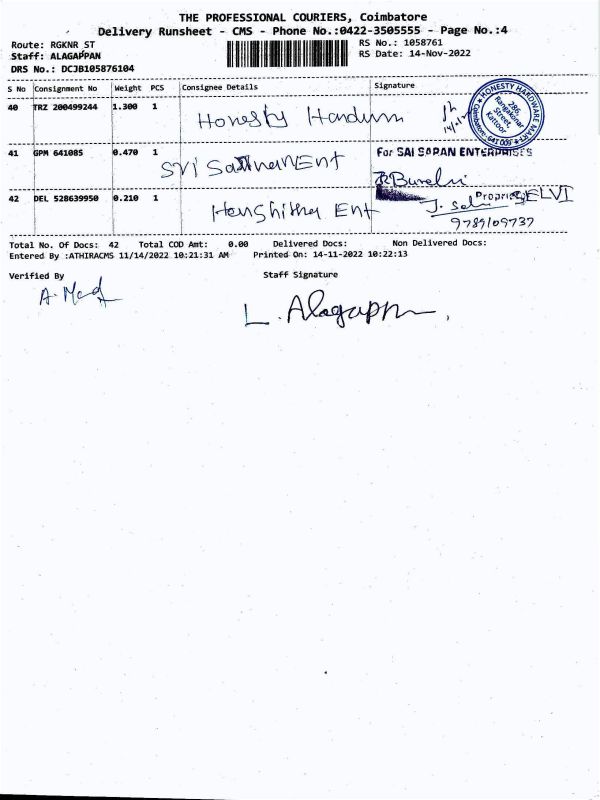 THE PROFESSIONAL COURIERS, Coimbatore
Delivery Runsheet - CMS - Phone No.:0422-3505555 - Page No.:4
Route: RGKNR ST
RS No.: 1058761
Staff: ALAGAPPAN
RS Date: 14-Nov-2022
DRS No.: DCJB105876104
S No Consignment No Weight PCS Consignee Details Signature
40 TRZ 200499244 1.300 1 Honesty
HONESTY HARDWARE MART
286, Rangakonar Street, Kattoor
Coimbatore - 641 009
41 GPM 641085 0.470 1 Sri Ent
For SAI SOPAN ENTERPRISES
Proprietor
42 DEL 528639950 0.210 1 Harshitha Ent
J. Selvi SELVI
9789109737
Total No. Of Docs: 42 Total COD Amt: 0.00 Delivered Docs: Non Delivered Docs:
Entered By :ATHIRACMS 11/14/2022 10:21:31 AM Printed On: 14-11-2022 10:22:13
Verified By Staff Signature
L. Alagappan